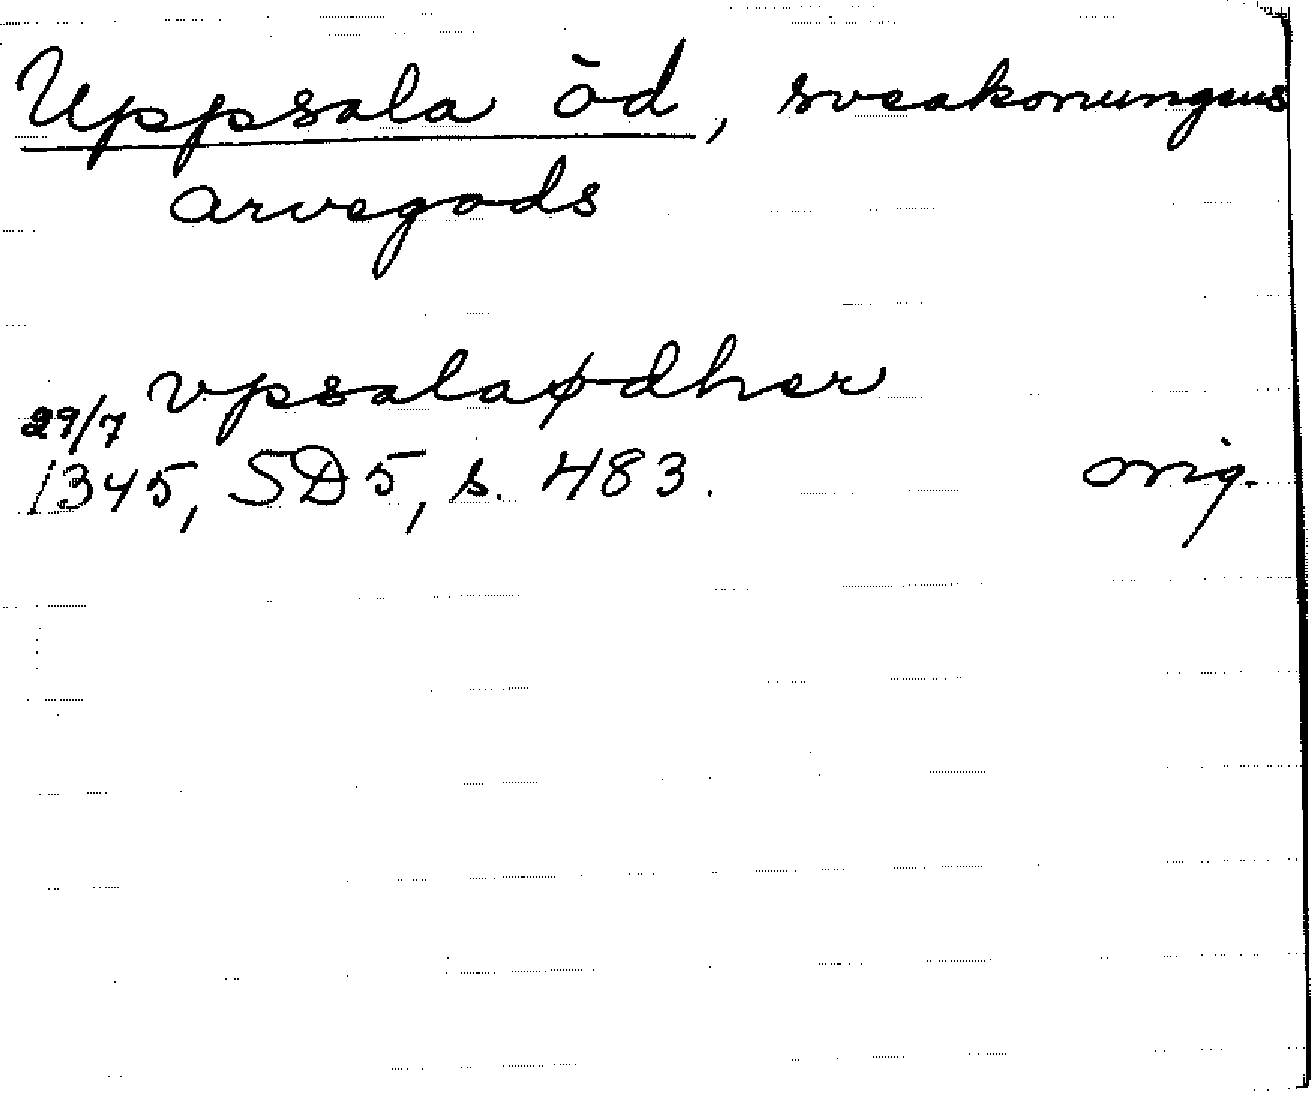 Uppsala öd, sveakonungens
arvegods
vpsalaødher
29/7
1345, SD5, s. 483. orig.